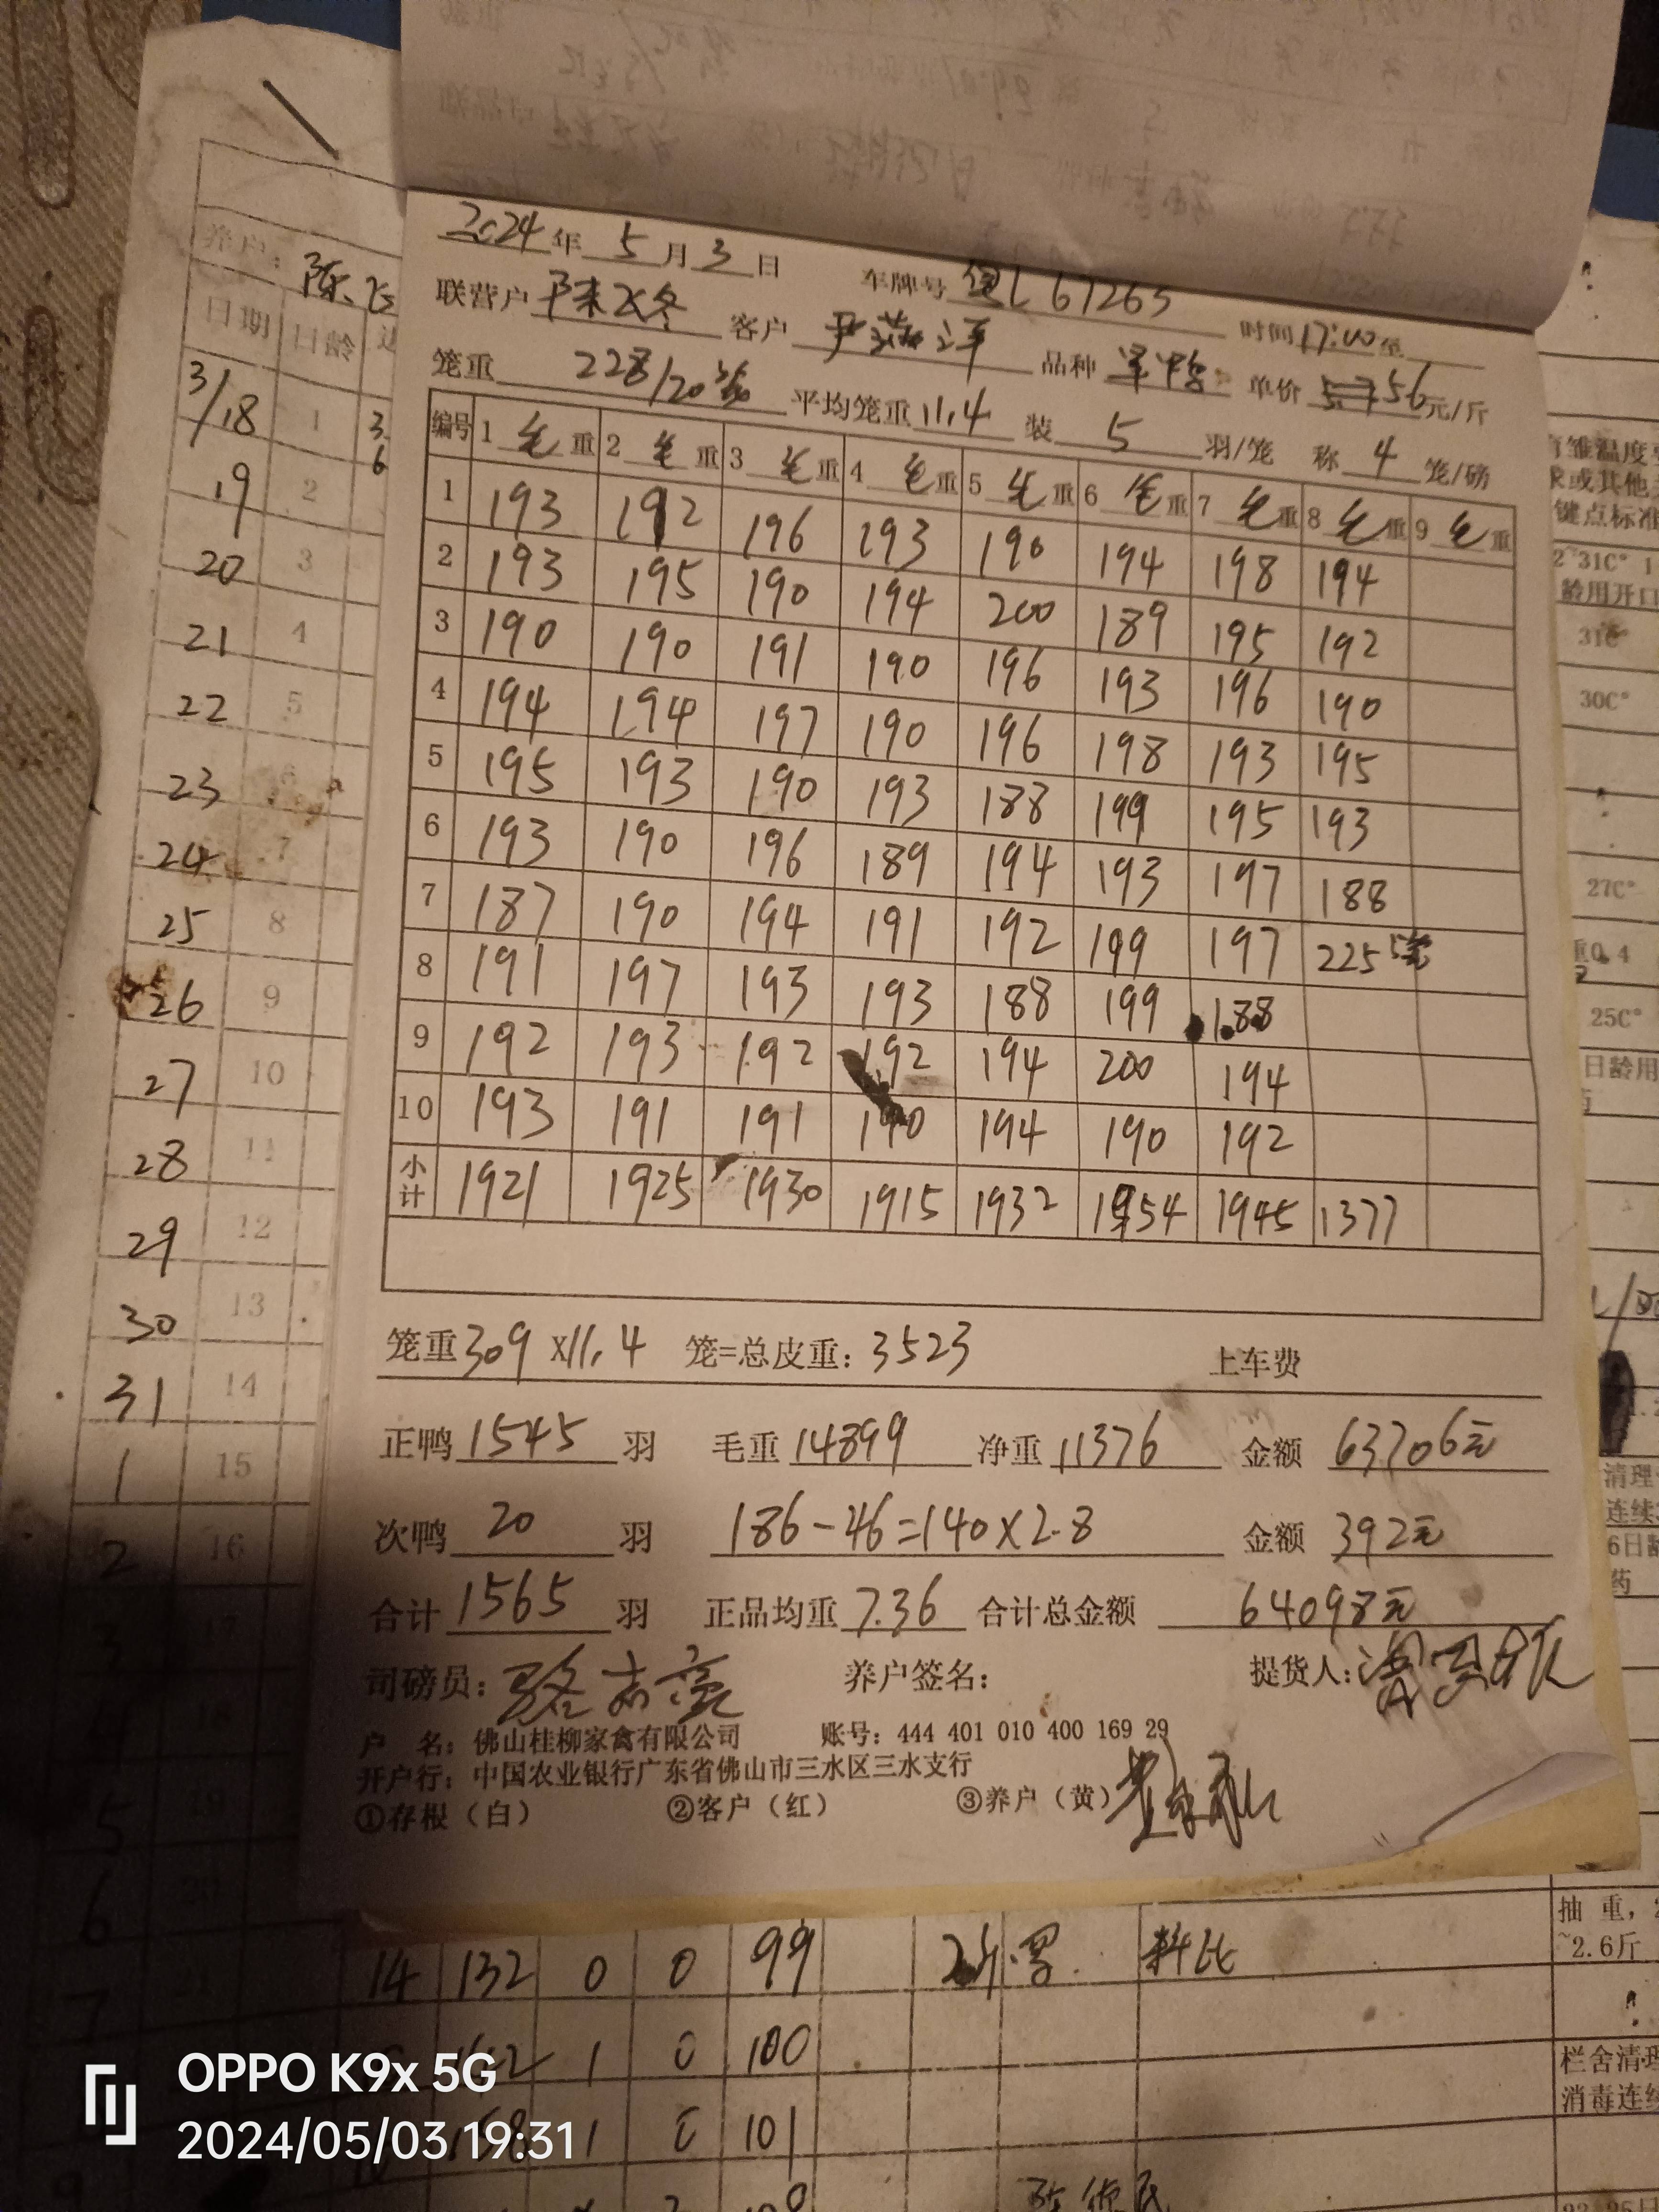 2024年5月3日
车牌号 L67265
联营户 陈飞冬 客户 时间17:00至
笼重 228/20 品种 单价 5.6元/斤
平均笼重11.4 装 5 羽/笼 称 4 笼/磅
编号 1 毛重 2 毛重 3 毛重 4 毛重 5 毛重 6 毛重 7 毛重 8 毛重 9 毛重
1 193 192 196 193 190 194 198 194
2 193 195 190 194 200 189 195 192
3 190 190 191 190 196 193 196 190
4 194 194 197 190 196 198 193 195
5 195 193 190 193 188 199 195 193
6 193 190 196 189 194 193 197 188
7 187 190 194 191 192 199 197 225 5笼
8 191 197 193 193 188 199 188
9 192 193 192 192 194 200 194
10 193 191 191 190 194 190 192
小计 1921 1925 1930 1915 1932 1954 1945 1377
笼重309 X11.4 笼=总皮重：3523 上车费
正鸭1545羽 毛重14899 净重11376 金额 63706元
次鸭 20 羽 186-46=140×2.8 金额 392元
合计1565羽 正品均重7.36 合计总金额 64098元
司磅员：骆志 养户签名： 提货人：
户 名：佛山桂柳家禽有限公司 账号：444 401 010 400 169 29
开户行：中国农业银行广东省佛山市三水区三水支行
①存根（白） ②客户（红） ③养户（黄）
养户：陈飞
日期 日龄
3/18 1
19 2
20 3
21 4
22 5
23 6
24 7
25 8
26 9
27 10
28 11
29 12
30 13
31 14
1 15
2 16
3 17
4 18
5 19
6 20
7 21
14 132 0 0 99 料比
1 0 100
158 1 0 101
育雏温度
求或其他
键点标准
2~31C°
龄用开口
31C°
30C°
27C°
重0.4
25C°
日龄用
药
清理
连续
6日龄
药
抽 重，
~2.6斤
栏舍清理
消毒连续
OPPO K9x 5G
2024/05/03 19:31